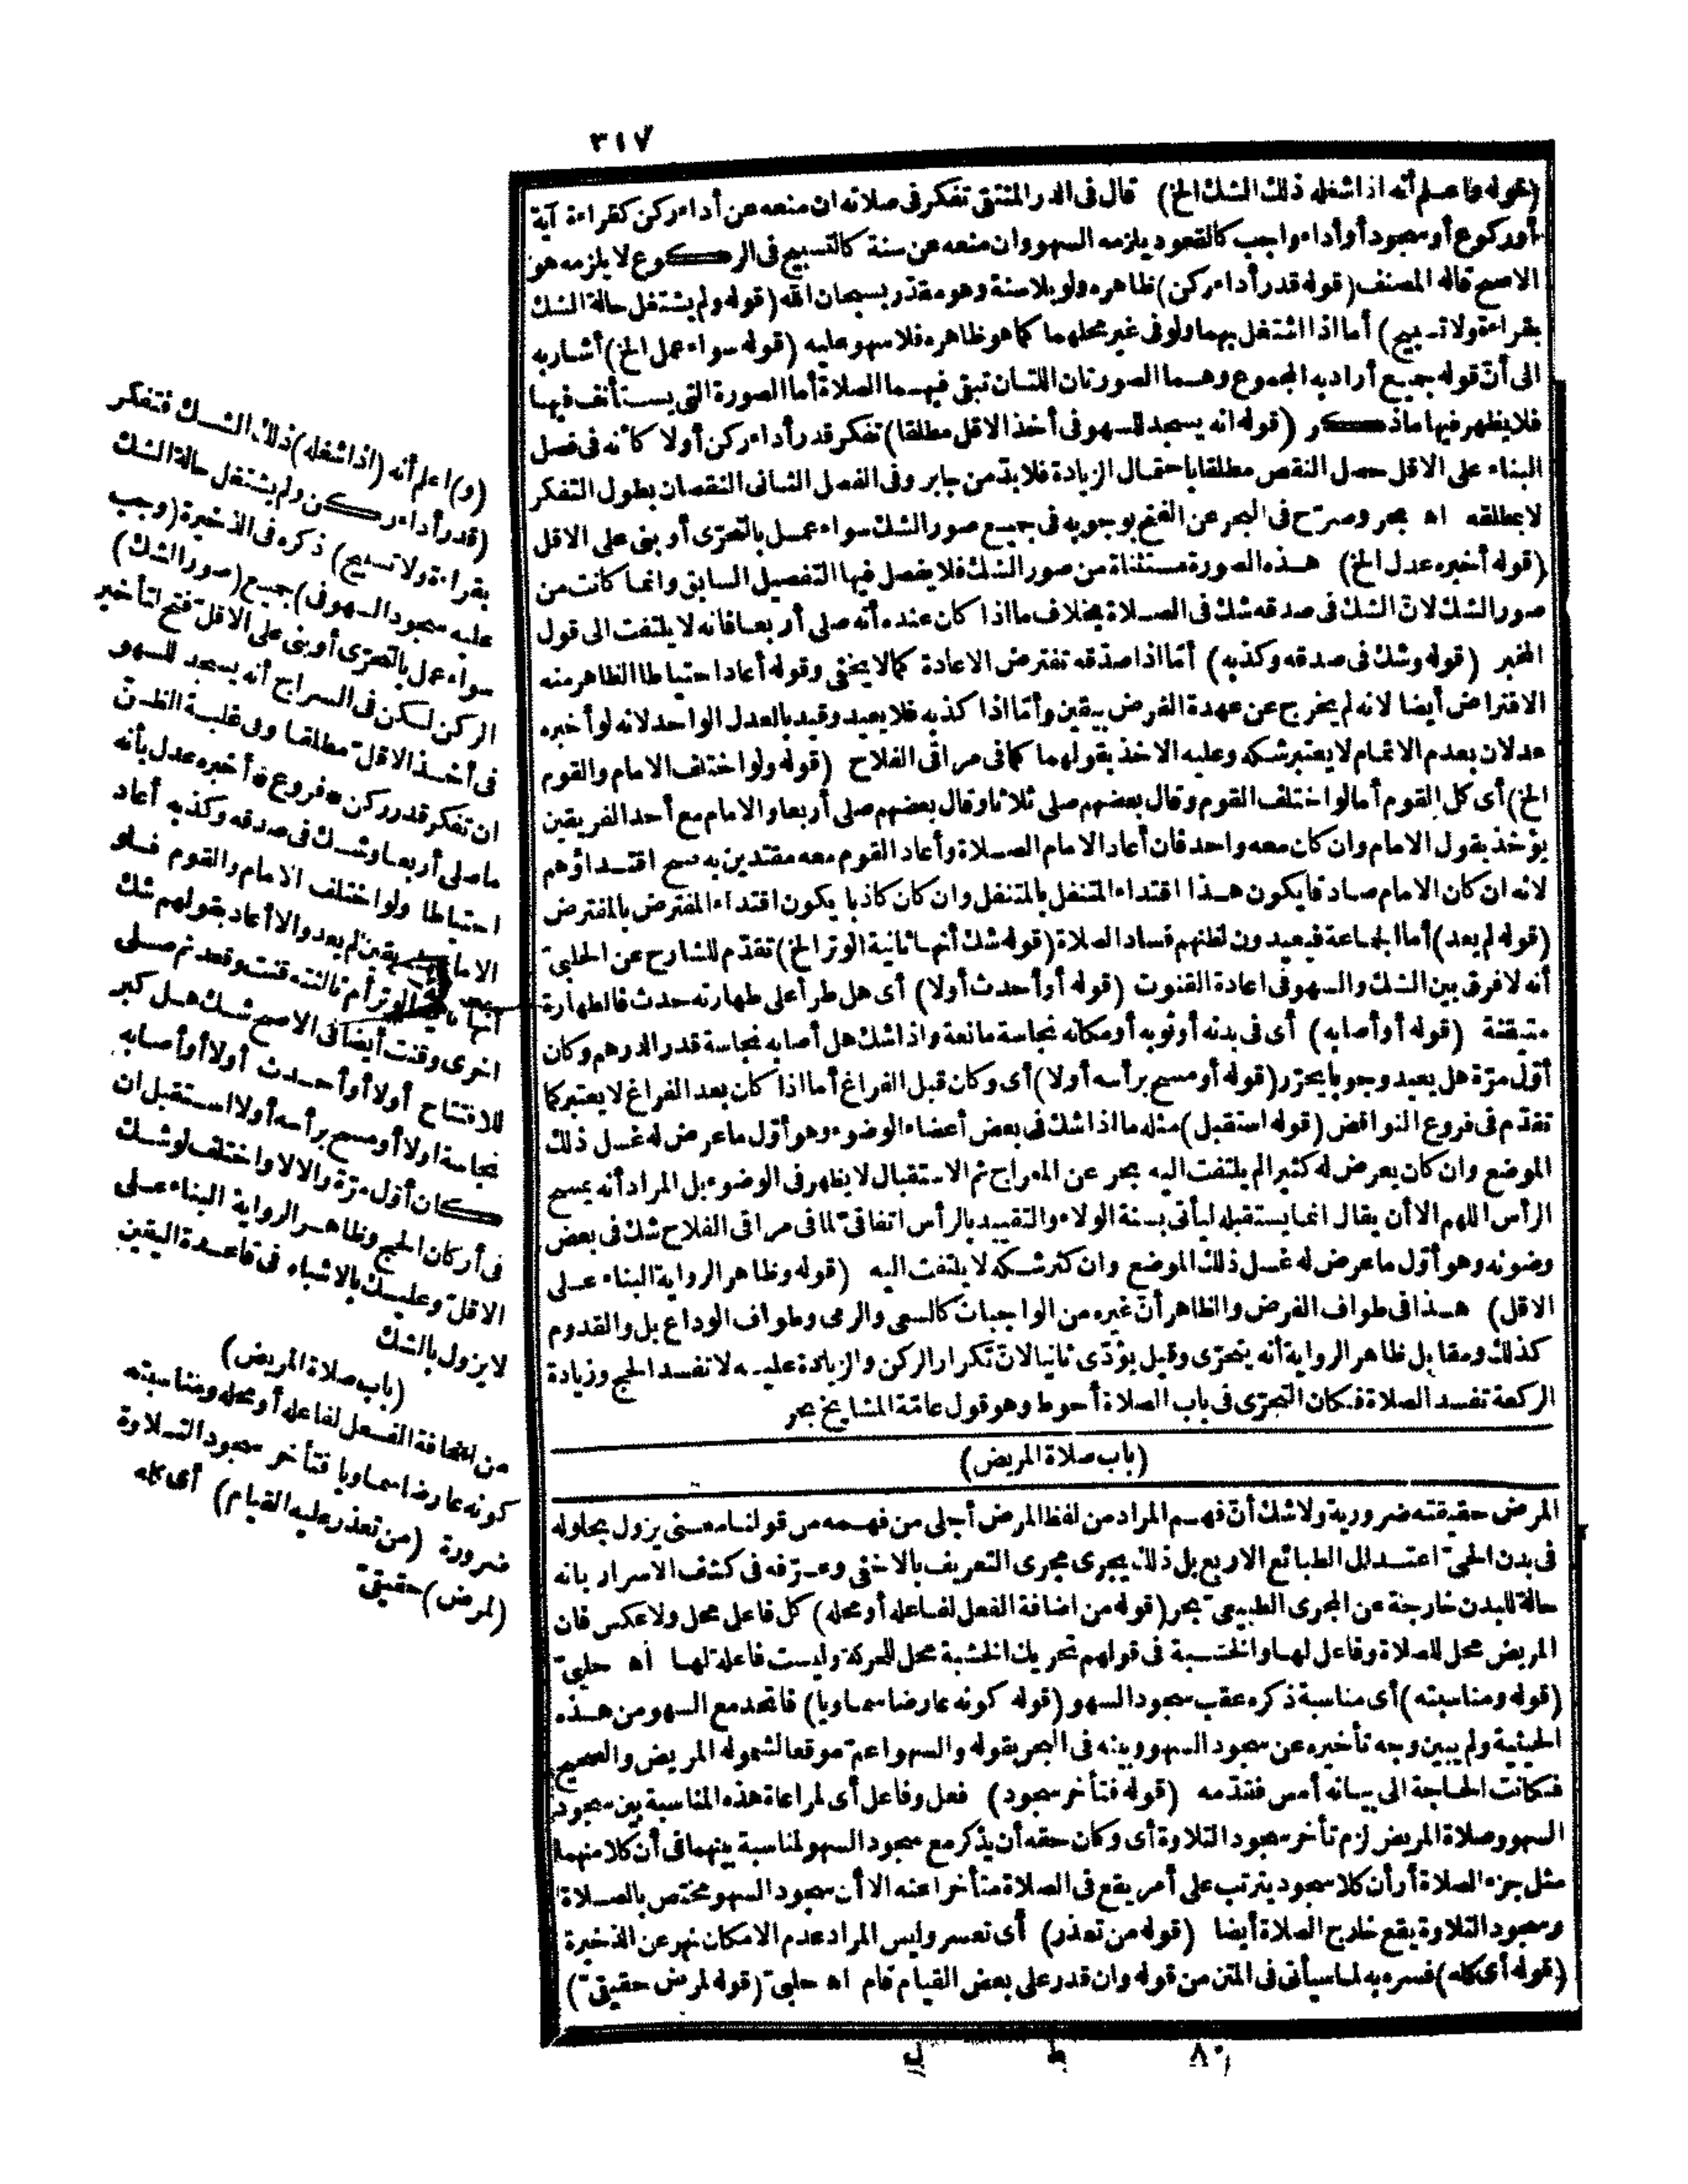 ٣١٧
(قوله واعلم أنه اذا شغله ذلك الشك الخ) قال فى الدر المنتقى تفكر فى صلاته ان منعه عن أداء ركن كقراءة آية
أو ركوع أو سجود أو أداء واجب كالقعود يلزمه السهو وان منعه عن سنة كالتسبيح فى الركوع لا يلزمه هو
الاصح قاله المصنف (قوله قدر أداء ركن) ظاهره ولو بلا سنة وهو مقدر بسبحان الله (قوله ولم يشتغل حالة الشك
بقراءة ولا تسبيح) أما اذا اشتغل بهما ولو فى غير محلهما كما هو ظاهره فلا سهو عليه (قوله سواء عمل الخ) أشار به
الى أن قوله جميع أراد به المجموع وهما الصورتان اللتان تبقى فيهما الصلاة أما الصورة التى يستأنف فيها
فلا يظهر فيها ما ذكر (قوله انه يسجد للسهو فى أخذ الاقل مطلقا) تفكر قدر أداء ركن أولا كأنه فى فصل
البناء على الاقل حصل النقص مطلقا باحتمال الزيادة فلا بد من جابر وفى الفصل الثانى النقصان بطول التفكر
لا بمطلقه اه بحر وصرّح فى البحر عن الفتح بوجوبه فى جميع صور الشك سواء عمل بالتحرّى أو بنى على الاقل
(قوله أخبره عدل الخ) هذه الصورة مستثناة من صور الشك فلا يفصل فيها التفصيل السابق وانما كانت من
صور الشك لانّ الشك فى صدقه شك فى الصلاة بخلاف ما اذا كان عنده أنه صلى أربعا فانه لا يلتفت الى قول
المخبر (قوله وشك فى صدقه وكذبه) أمّا اذا صدّقه تفترض الاعادة كما لا يخفى وقوله أعاد احتياطا الظاهر منه
الافتراض أيضا لانه لم يخرج عن عهدة الفرض بيقين وأمّا اذا كذبه فلا يعيد وقيد بالعدل الواحد لانه لو أخبره
عدلان بعدم الاتمام لا يعتبر شكه وعليه الاخذ بقولهما كما فى مراقى الفلاح (قوله ولو اختلف الامام والقوم
الخ) أى كل القوم أما لو اختلف القوم وقال بعضهم صلى ثلاثا وقال بعضهم صلى أربعا والامام مع أحد الفريقين
يؤخذ بقول الامام وان كان معه واحد فان أعاد الامام الصلاة وأعاد القوم معه مقتدين به صح اقتداؤهم
لانه ان كان الامام صادقا يكون هذا اقتداء المتنفل بالمتنفل وان كان كاذبا يكون اقتداء المفترض بالمفترض
(قوله لم يعد) أما الجماعة فيعيدون لظنهم فساد الصلاة (قوله شك أنها ثانية الوتر الخ) تقدّم للشارح عن الحلبىّ
أنه لا فرق بين الشك والسهو فى اعادة القنوت (قوله أو أحدث أولا) أى هل طرأ على طهارته حدث فالطهارة
متيقنة (قوله أو أصابه) أى فى بدنه أو ثوبه أو مكانه نجاسة مانعة واذا شك هل أصابه نجاسة قدر الدرهم وكان
أوّل مرّة هل يعيد وجوبا يحرّر (قوله أو مسح برأسه أولا) أى وكان قبل الفراغ أما اذا كان بعد الفراغ لا يعتبر كما
تقدّم فى فروع النواقض (قوله استقبل) مثله ما اذا شك فى بعض أعضاء الوضوء وهو أوّل ما عرض له غسل ذلك
الموضع وان كان يعرض له كثيرا لم يلتفت اليه بحر عن المعراج ثم الاستقبال لا يظهر فى الوضوء بل المراد أنه يمسح
الرأس اللهم الا أن يقال انما يستقبله ليأتى بسنة الولاء والتقييد بالرأس اتفاقىّ لما فى مراقى الفلاح شك فى بعض
وضوئه وهو أوّل ما عرض له غسل ذلك الموضع وان كثر شكه لا يلتفت اليه (قوله وظاهر الرواية البناء على
الاقل) هذا فى طواف الفرض والظاهر أن غيره من الواجبات كالسعى والرمى وطواف الوداع بل والقدوم
كذلك ومقابل ظاهر الرواية أنه يتحرّى وقيل يؤدّى ثانيا لانّ تكرار الركن والزيادة عليه لا تفسد الحج وزيادة
الركعة تفسد الصلاة فكان التحرّى فى باب الصلاة أحوط وهو قول عامّة المشايخ بحر
(باب صلاة المريض)
المرض حقيقته ضرورية ولا شك أنّ فهم المراد من لفظ المرض أجلى من فهمه من قولنا معنى يزول بحلوله
فى بدن الحىّ اعتدال الطبائع الاربع بل ذلك يجرى مجرى التعريف بالاخفى وعرّفه فى كشف الاسرار بانه
حالة للبدن خارجة عن المجرى الطبيعىّ بحر (قوله من اضافة الفعل لفاعله أو محله) كل فاعل محل ولا عكس فان
المريض محل للصلاة وفاعل لها والخشبة فى قولهم تحريك الخشبة محل للحركة وليست فاعلة لها اه حلبىّ
(قوله ومناسبته) أى مناسبة ذكره عقب سجود السهو (قوله كونه عارضا سماويا) فاتحد مع السهو من هذه
الحيثية ولم يبين وجه تأخيره عن سجود السهو وبينه فى البحر بقوله والسهو اعمّ موقعا لشموله المريض والصحيح
فكانت الحاجة الى بيانه أمس فقدّمه (قوله فتأخر سجود) فعل وفاعل أى لمراعاة هذه المناسبة بين سجود
السهو وصلاة المريض لزم تأخر سجود التلاوة أى وكان حقه أن يذكر مع سجود السهو لمناسبة بينهما فى أن كلا منهما
مثل جزء الصلاة أو أن كلا سجود يترتب على أمر يقع فى الصلاة متأخرا عنه الا أن سجود السهو مختص بالصلاة
وسجود التلاوة يقع خارج الصلاة أيضا (قوله من تعذر) أى تعسر وليس المراد عدم الامكان نهر عن الذخيرة
(قوله أى كله) فسره به لما سيأتى فى المتن من قوله وان قدر على بعض القيام قام اه حلبىّ (قوله لمرض حقيقىّ)
(و) اعلم أنه (اذا شغله) ذلك الشك فتفكر
(قدر أداء ركن ولم يشتغل حالة الشك
بقراءة ولا تسبيح) ذكره فى الذخيرة (وجب
عليه سجود السهو فى) جميع (صور الشك)
سواء عمل بالتحرّى أو بنى على الاقلّ فتح لتأخير
الركن لكن فى السراج أنه يسجد للسهو
فى أخذ الاقلّ مطلقا وفى غلبة الظن
ان تفكر قدر ركن * فروع * أخبره عدل بأنه
ما صلى أربعا وشك فى صدقه وكذبه أعاد
احتياطا ولو اختلف الامام والقوم فلو
الامام بيقين لم يعد والا أعاد بقولهم شك
أنها ثانية الوتر أم ثالثته قنت وقعد ثم صلى
اخرى وقنت أيضا فى الاصح شك هل كبر
للافتتاح أولا أو أحدث أولا أو أصابه
نجاسة اولا أو مسح برأسه أولا استقبل ان
كان أوّل مرّة والا لا واختلف لو شك
فى أركان الحج وظاهر الرواية البناء على
الاقلّ وعليك بالاشباه فى قاعدة اليقين
لا يزول بالشك
(باب صلاة المريض)
من اضافة الفعل لفاعله أو محله ومناسبته
كونه عارضا سماويا فتأخر سجود التلاوة
ضرورة (من تعذر عليه القيام) أى كله
(لمرض) حقيقىّ
٨٠ ط ل